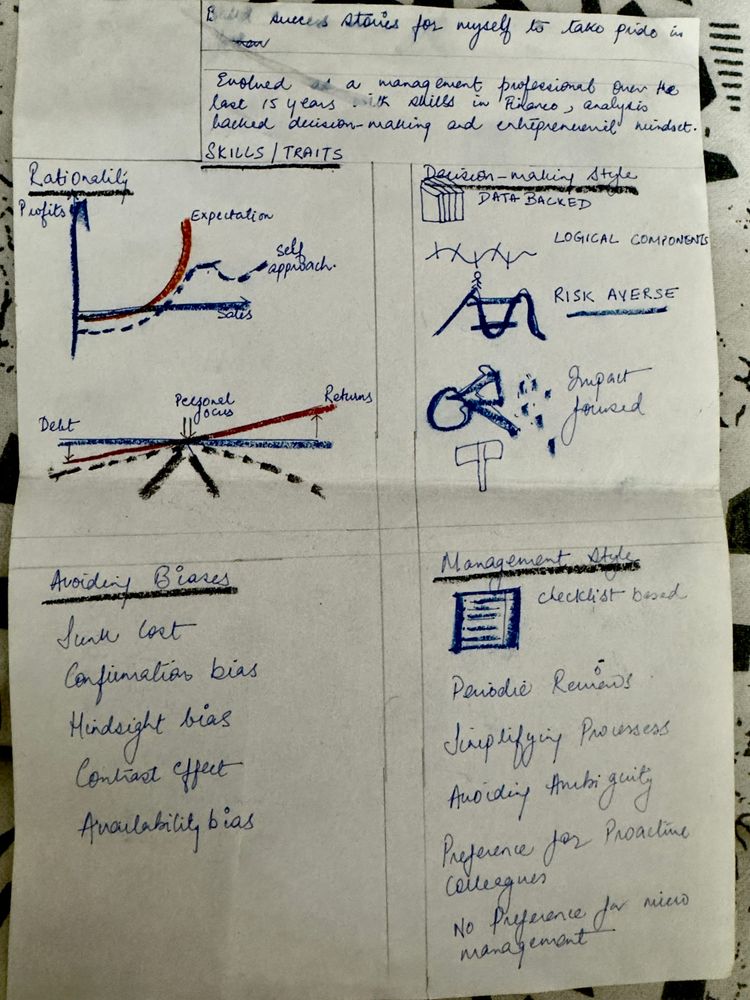 success stories for myself to take pride in
Evolved as a management professional over the
last 15 years with skills in Finance, analysis
backed decision-making and entrepreneurial mindset.
SKILLS/TRAITS
Rationality
Profits
Expectation
Self
approach.
Sales
Debt
Personal
focus
Returns
Decision-making Style
DATA BACKED
LOGICAL COMPONENTS
RISK AVERSE
Impact
focused
Avoiding Biases
Sunk Cost
Confirmation bias
Hindsight bias
Contrast effect
Availability bias
Management Style
checklist based
Periodic Reviews
Simplifying Processess
Avoiding Ambiguity
Preference for Proactive
Colleagues
No Preference for micro
management